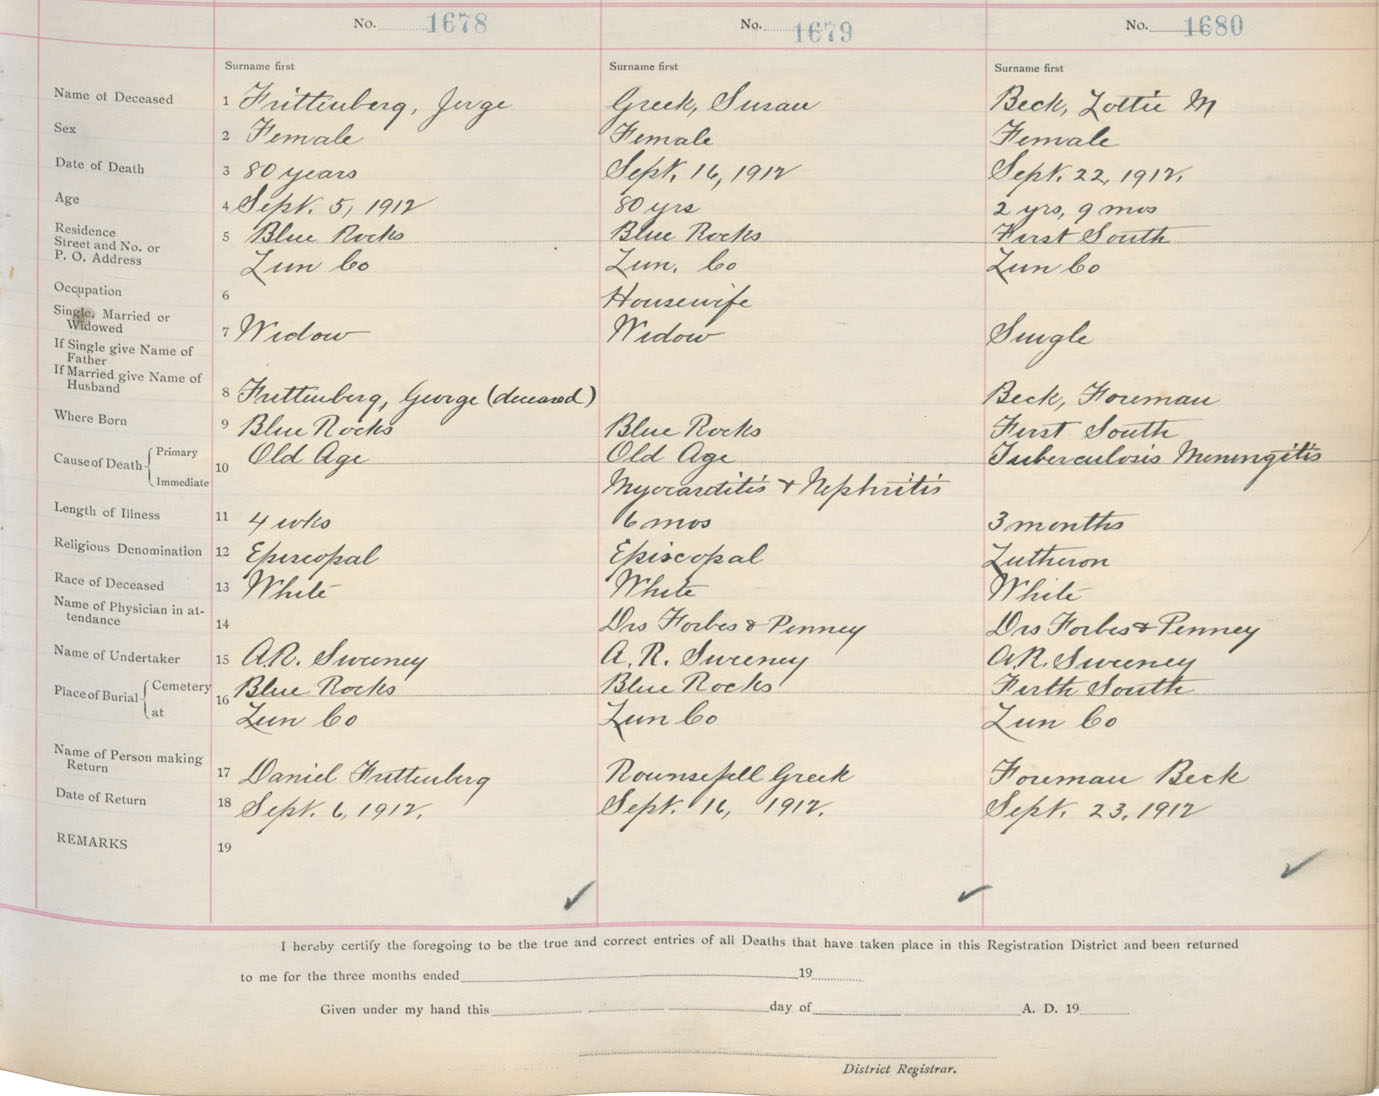 No. 1678 No. 1679 No. 1680
Surname first Surname first Surname first
Name of Deceased 1 Frittenberg, Jorge Greek, Susan Beck, Lottie M
Sex 2 Female Female Female
Date of Death 3 80 years Sept. 16, 1912 Sept. 22, 1912.
Age 4 Sept. 5, 1912 80 yrs 2 yrs, 9 mos
Residence
Street and No. or 5 Blue Rocks Blue Rocks First South
P. O. Address Lun Co Lun. Co Lun Co
Occupation 6 Housewife
Single, Married or
Widowed 7 Widow Widow Single
If Single give Name of
Father
If Married give Name of
Husband 8 Frittenberg, George (deceased) Beck, Foreman
Where Born 9 Blue Rocks Blue Rocks First South
Cause of Death Primary 10 Old Age Old Age Tuberculosis Meningitis
Immediate Myocarditis & Nephritis
Length of Illness 11 4 wks 6 mos 3 months
Religious Denomination 12 Episcopal Episcopal Lutheron
Race of Deceased 13 White White White
Name of Physician in at-
tendance 14 Drs Forbes & Penney Drs Forbes & Penney
Name of Undertaker 15 A.R. Sweeney A. R. Sweeney A.R. Sweeney
Place of Burial Cemetery 16 Blue Rocks Blue Rocks Firth South
at Lun Co Lun Co Lun Co
Name of Person making
Return 17 Daniel Frittenberg Rounsefell Greek Foreman Beck
Date of Return 18 Sept. 6, 1912. Sept. 16, 1912. Sept. 23, 1912
REMARKS 19
I hereby certify the foregoing to be the true and correct entries of all Deaths that have taken place in this Registration District and been returned
to me for the three months ended 19
Given under my hand this day of A. D. 19
District Registrar.